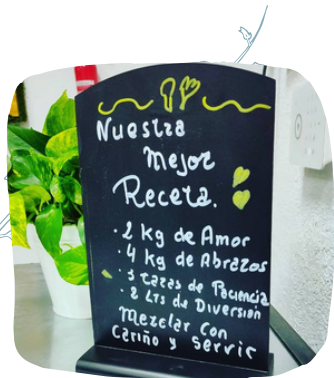 Nuestra
Mejor
Receta.
· 2 Kg de Amor
· 4 Kg de Abrazos
· 3 tazas de Paciencia
· 2 Lts de Diversión
Mezclar Con
Cariño y Servir